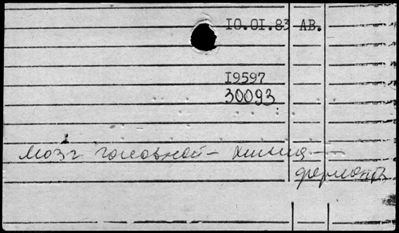 10.01.83 АВ.
19597
30093
мозг головной - химия -
ферменты